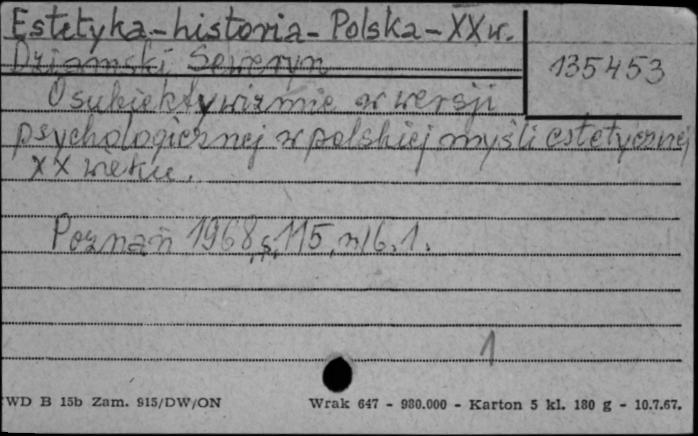 Estetyka-historia-Polska-XXw.
Dziamski Seweryn
135453
O subiektywizmie w wersji
psychologicznej w polskiej myśli estetycznej
XX wieku.
Poznań 1968, s. 115, nlb. 1.
1
WD B 15b Zam. 915/DW/ON
Wrak 647 - 980.000 - Karton 5 kl. 180 g - 10.7.67.